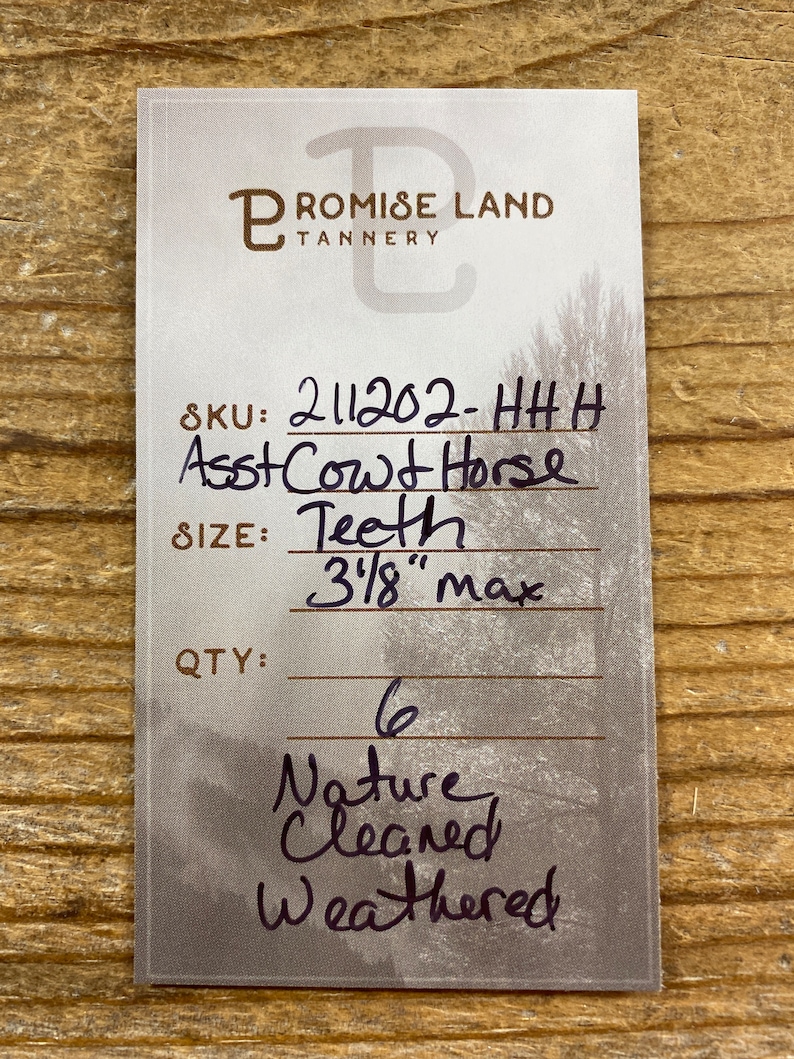 PROMISE LAND
TANNERY
SKU: 211202-HHH
Asst Cow & Horse
SIZE: Teeth
3 1/8" max
QTY:
6
Nature
Cleaned
Weathered